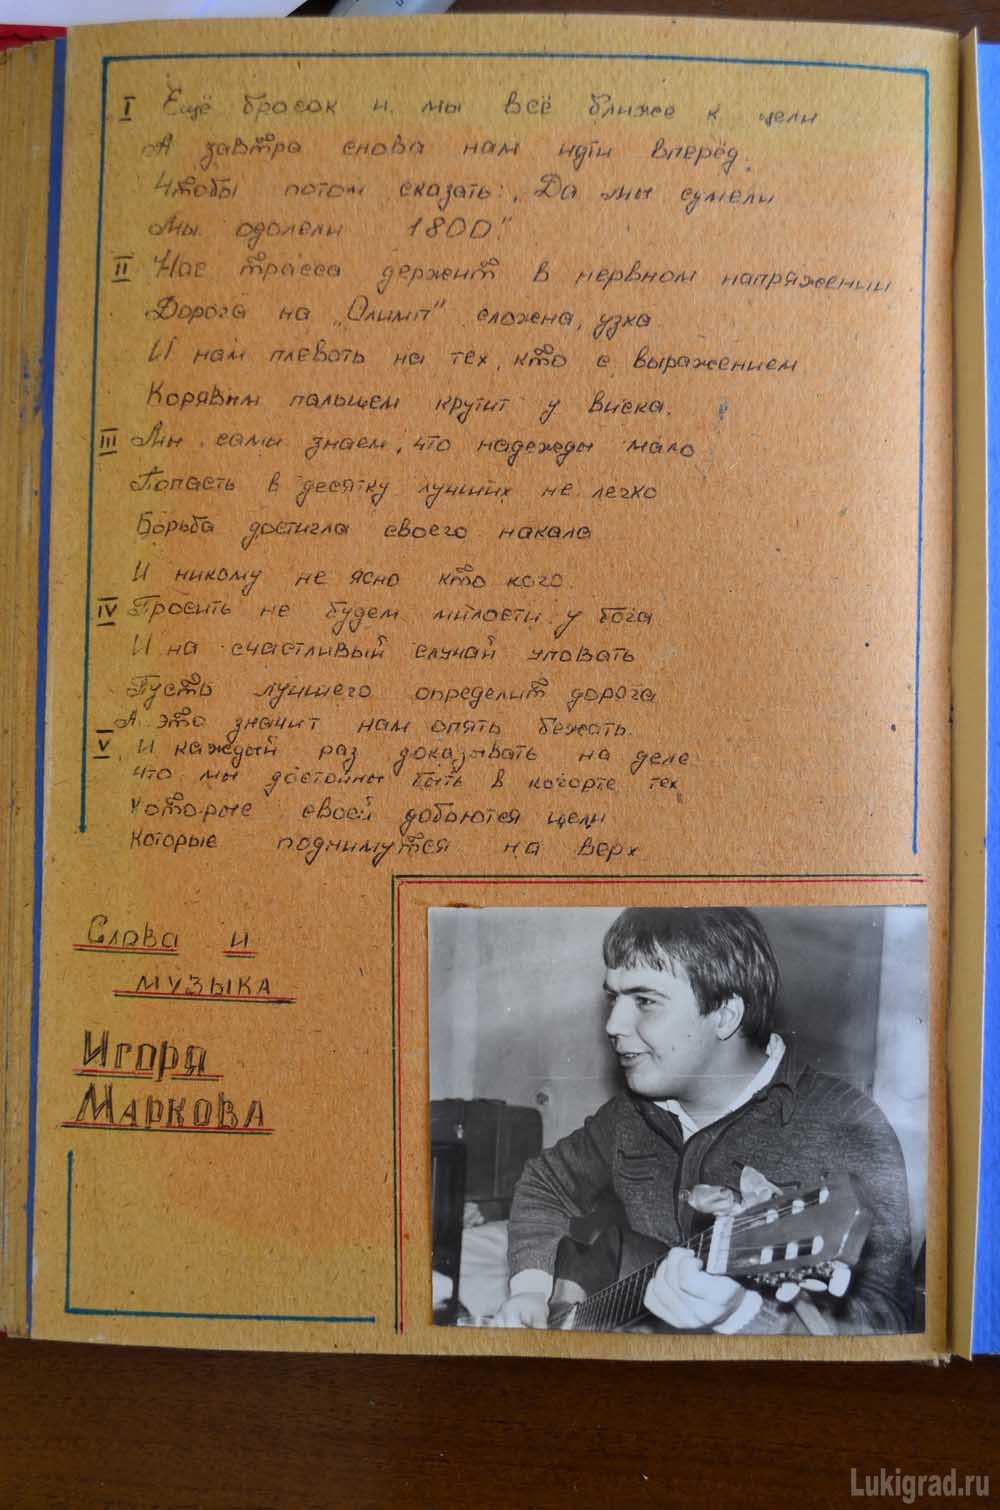 I Ещё бросок и мы всё ближе к цели
А завтра снова нам идти вперёд.
Чтобы потом сказать: „Да мы сумели
Мы одолели 1800"
II Нас трасса держит в нервном напряжении.
Дорога на „Олимп" сложна, узка
И нам плевать на тех, кто с выражением
Корявым пальцем крутит у виска.
III Мы сами знаем, что надежды мало
Попасть в десятку лучших не легко
Борьба достигла своего накала
И никому не ясно кто кого.
IV Просить не будем милости у бога
И на счастливый случай уповать
Пусть лучшего определит дорога
А это значит нам опять бежать.
V И каждый раз доказывать на деле
Что мы достойны быть в когорте тех
Которые своей добьются цели
Которые поднимутся на верх
Слова и
музыка
Игоря
Маркова
Lukigrad.ru